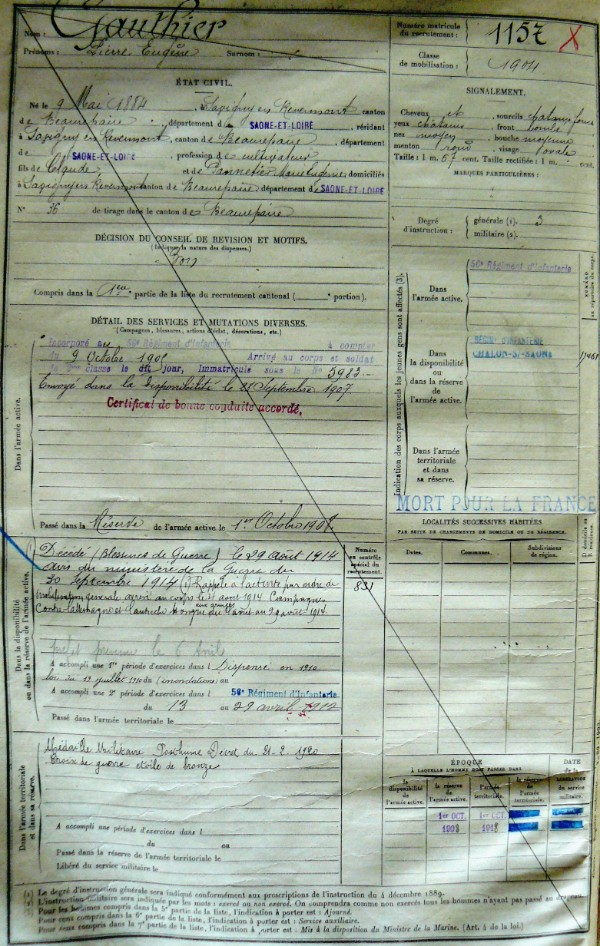 Nom : Gauthier
Prénoms : Pierre Eugène Surnom :
Numéro matricule
du recrutement : 1157 X
Classe
de mobilisation : 1904
ÉTAT CIVIL.
Né le 9 Mai 1884, à Sagigny en Revermont canton
de Beaurepaire, département de SAONE-ET-LOIRE, résidant
à Sagigny en Revermont, canton de Beaurepaire, département
de SAONE-ET-LOIRE, profession de cultivateur
fils de Claude et de Pannetier domiciliés
à Sagigny en Revermont canton de Beaurepaire département de SAONE-ET-LOIRE
N° 36 de tirage dans le canton de Beaurepaire
SIGNALEMENT.
Cheveux et sourcils chatains
yeux chatains front
nez moyen bouche moyenne
menton rond visage ovale
Taille : 1 m. 57 cent. Taille rectifiée : 1 m. cent.
MARQUES PARTICULIÈRES :
Degré
d'instruction :
générale (1). 3
militaire (2).
DÉCISION DU CONSEIL DE REVISION ET MOTIFS.
(Indiquer la nature des dispenses.)
Bon
Compris dans la 1re partie de la liste du recrutement cantonal ( portion).
DÉTAIL DES SERVICES ET MUTATIONS DIVERSES.
(Campagnes, blessures, actions d'éclat, décorations, etc.)
Incorporé au 56e Régiment d'Infanterie à compter
du 9 Octobre 1905 Arrivé au corps et soldat
de 2me classe le dit jour, Immatriculé sous le N° 5983
Envoyé dans la disponibilité le 28 Septembre 1907
Certificat de bonne conduite accordé.
Dans l'armée active.
Passé dans la Réserve de l'armée active le 1er Octobre 1908
Indication des corps auxquels les jeunes gens sont affectés (3).
Dans
l'armée active.
56e Régiment d'Infanterie
Dans
la disponibilité
ou dans
la réserve
de l'armée
active.
RÉGt D'INFANTERIE
CHALON-S/-SAONE
Dans l'armée
territoriale
et dans
sa réserve.
MORT POUR LA FRANCE
LOCALITÉS SUCCESSIVES HABITÉES
PAR SUITE DE CHANGEMENTS DE DOMICILE OU DE RÉSIDENCE.
Dates. Communes. Subdivisions
de région.
Dans la disponibilité
ou dans la réserve de l'armée active.
Décédé (Blessures de Guerre) le 29 août 1914
avis du ministère de la Guerre du
30 Septembre 1914 Rappelé à l'activité par ordre de
mobilisation générale arrivé au corps le août 1914 Campagne
Contre l'allemagne et l'autriche Hongrie du août au 29 août 1914
aux armées
Numéro
au contrôle
spécial du
recrutement.
831
A accompli une 1re période d'exercices dans l Dispensé en 1910
loi du 13 juillet 1910 du (inondations) au
A accompli une 2e période d'exercices dans l 56e Régiment d'Infanterie
du 13 au 29 avril 1912
Passé dans l'armée territoriale le
Dans l'armée territoriale
et dans sa réserve.
Médaille Militaire Posthume Décret du 21-2-1920
Croix de guerre étoile de bronze
A accompli une période d'exercices dans l
du au
Passé dans la réserve de l'armée territoriale le
Libéré du service militaire le
ÉPOQUE
À LAQUELLE L'HOMME DOIT PASSER DANS
DATE
de la
libération
du service
militaire.
la
disponibilité
de l'armée
active.
la réserve
de
l'armée active.
l'armée
territoriale.
la réserve
de
l'armée
territoriale.
1er OCT. 1er OCT.
1908 1918
(1) Le degré d'instruction générale sera indiqué conformément aux prescriptions de l'instruction du 4 décembre 1889.
(2) L'instruction militaire sera indiquée par les mots : exercé ou non exercé. On comprendra comme non exercés tous les hommes n'ayant pas passé au drapeau.
(3) Pour les hommes compris dans la 5e partie de la liste, l'indication à porter est : Ajourné.
Pour ceux compris dans la 6e partie de la liste, l'indication à porter est : Service auxiliaire.
Pour ceux compris dans la 7e partie de la liste, l'indication à porter est : Mis à la disposition du Ministre de la Marine. (Art. 4 de la loi.)